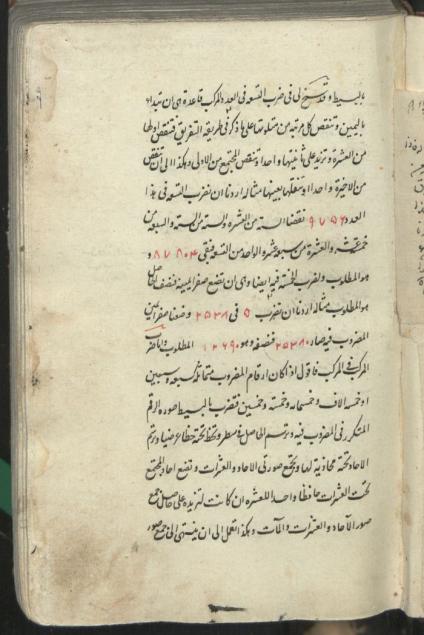 بالبسيط وقد سنح لى فى ضرب التسعة فى العدد المركب قاعدة هى ان تبداء
باليمين وتنقص كل مرتبة من متلوتها على ما ذكر فى طريقة التفريق فتنقص اولها
من العشرة وتزيد على ثانيتها واحدا وتنقص المجتمع من الاولى وهكذا الى ان تنقص
من الاخيرة واحدا وتنقلها بعينها مثاله اردنا ان نضرب التسعة فى هذا
العدد ٩٧٥٦ نقصنا الستة من العشرة والستة من الستة والسبعة من
خمسة عشر والعشرة من سبعة عشر والواحد من التسعة فبقى ٨٧٨٠٤ و
هو المطلوب ولضرب الخمسة فيه ايضا وهى ان تضع صفرا ليمينه فنصف الحاصل
هو المطلوب مثاله اردنا ان نضرب ٥ فى ٢٥٣٨ وضعنا صفرا يمين
المضروب فيه صار ٢٥٣٨٠ فنصفه وهو ١٢٦٩٠ المطلوب واما ضرب
المركب فى المركب فاقول اذا كان ارقام المضروب متماثلة كسبعة وسبعين
او خمسة الاف وخمسمائة وخمسة وخمسين فتضرب بالبسيط صورة الرقم
المتكرر فى المضروب فيه وترسم الحاصل فى سطر وتخط تحته خطا عرضيا وترسم
الاحاد تحته محاذية لها وتجمع صورتى الاحاد والعشرات وتضع احاد المجتمع
تحت العشرات حافظا واحدا للعشرة ان كانت لتزيده على حاصل جمع
صور الآحاد والعشرات والمآت وهكذا تعمل الى ان ينتهى الى جمع صور